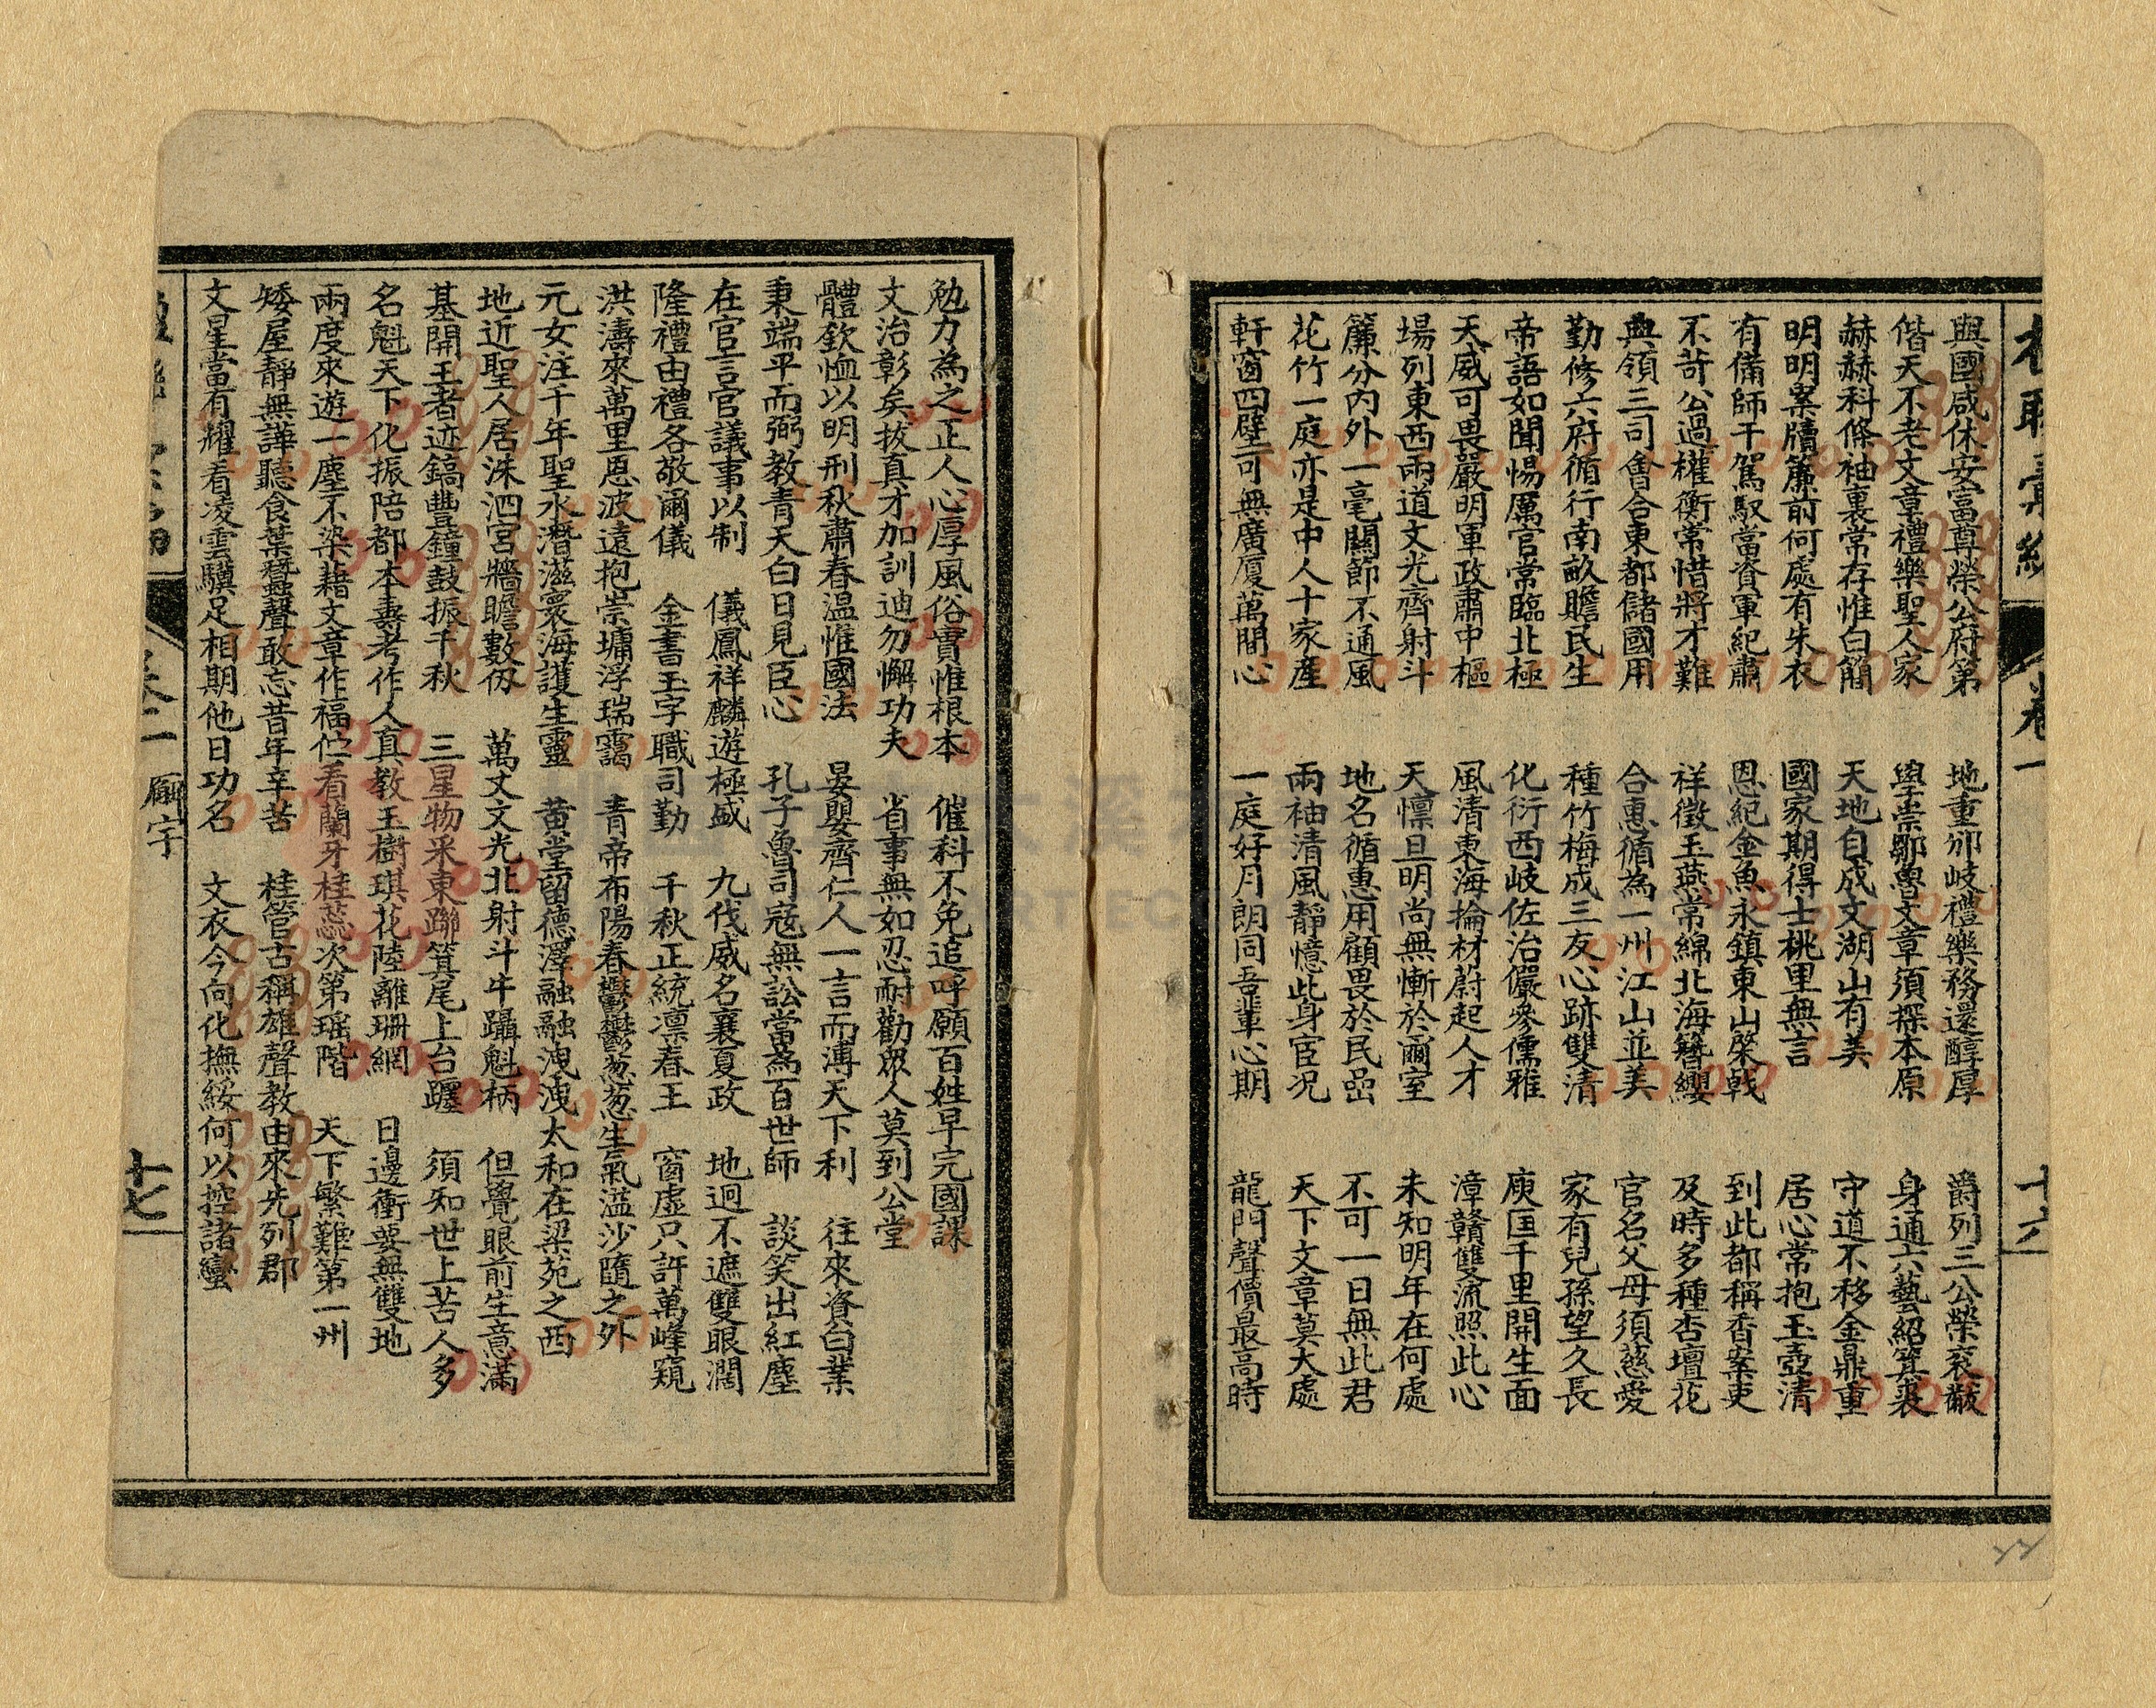 卷一
十六
與國咸休安富尊榮公府第 地重邠岐禮樂務還醇厚 爵列三公榮袞黻
偕天不老文章禮樂聖人家 學崇鄒魯文章須探本原 身通六藝紹箕裘
赫赫科條袖裏常存惟白簡 天地自成文湖山有美 守道不移金鼎重
明明案牘簾前何處有朱衣 國家期得士桃里無言 居心常抱玉壺清
有備師干駕馭當資軍紀肅 恩紀金魚永鎮東山棨戟 到此都稱香案吏
不苛公過權衡常惜將才難 祥徵玉燕常綿北海簪纓 及時多種杏壇花
典領三司會合東都儲國用 合惠循為一州江山並美 官名父母須慈愛
勤修六府循行南畝贍民生 種竹梅成三友心跡雙清 家有兒孫望久長
帝語如聞惕厲官常臨北極 化衍西岐佐治儼參儒雅 庾匡千里開生面
天威可畏嚴明軍政肅中樞 風清東海掄材蔚起人才 漳贛雙流照此心
場列東西兩道文光齊射斗 天懍旦明尚無慚於爾室 未知明年在何處
簾分內外一毫關節不通風 地名循惠用顧畏於民喦 不可一日無此君
花竹一庭亦是中人十家產 兩袖清風靜憶此身官况 天下文章莫大處
軒窗四壁可無廣廈萬間心 一庭好月朗同吾輩心期 龍門聲價最高時
勉力為之正人心厚風俗實惟根本 催科不免追呼願百姓早完國課
文治彰矣拔真才加訓迪勿懈功夫 省事無如忍耐勸眾人莫到公堂
體欽恤以明刑秋肅春温惟國法 晏嬰齊仁人一言而溥天下利 往來資白業
秉端平而弼教青天白日見臣心 孔子魯司寇無訟當為百世師 談笑出紅塵
在官言官議事以制 儀鳳祥麟遊極盛 九伐威名襄夏政 地迥不遮雙眼濶
隆禮由禮各敬爾儀 金書玉字職司勤 千秋正統凛春王 窗虛只許萬峰窺
洪濤來萬里恩波遠抱崇墉浮瑞靄 青帝布陽春鬱鬱葱葱生氣溢沙隨之外
元女注千年聖水潛滋寰海護生靈 黄堂留德澤融融洩洩太和在梁苑之西
地近聖人居洙泗宮牆瞻數仞 萬丈文光北射斗牛躡魁柄 但覺眼前生意滿
基開王者迹鎬豐鐘鼓振千秋 三星物采東躔箕尾上台躔 須知世上苦人多
名魁天下化振陪都本壽考作人真教玉樹琪花陸離珊網 日邊衝要無雙地
兩度來遊一塵不染藉文章作福佇看蘭牙桂蕊次第瑶階 天下繁難第一州
矮屋靜無譁聽食葉蠶聲敢忘昔年辛苦 桂管古稱雄聲教由來先列郡
文星當有耀看凌雲驥足相期他日功名 文衣今向化撫綏何以控諸蠻
卷二 廨宇
十七